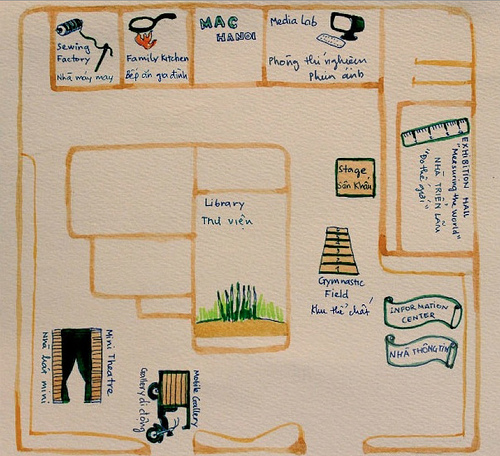 Sewing
Factory
Nhà máy may
Family Kitchen
Bếp ăn gia đình
MAC
HANOI
Media Lab
Phòng thí nghiệm
phản ánh
EXHIBITION HALL
"Measuring the World"
NHÀ TRIỂN LÃM
"Đo thế giới"
Stage
Sân Khấu
Library
Thư viện
Gymnastic
Field
Khu thể chất
INFORMATION
CENTER
NHÀ THÔNG TIN
Mini Theatre
Nhà hát mini
Mobile Gallery
Gallery di động